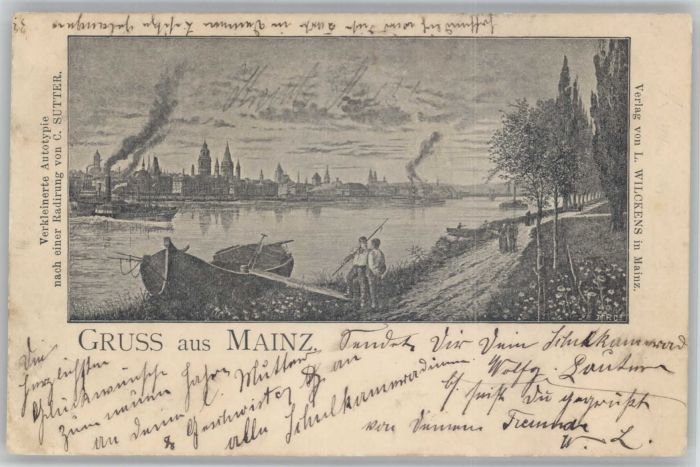 Verkleinerte Autotypie
nach einer Radirung von C. SUTTER.
Verlag von L. WILCKENS in Mainz.
GRUSS aus MAINZ.
Die
herzlichsten
Glückwünsche
zum neuen Jahre
an deine l. Mutter
& Geschwister & an
alle Schulkameradinnen
Sendet Dir Dein Schulkamerad
Wolfg.
Es seist Du gegrüßt
von Deinem Freunde
W. L.